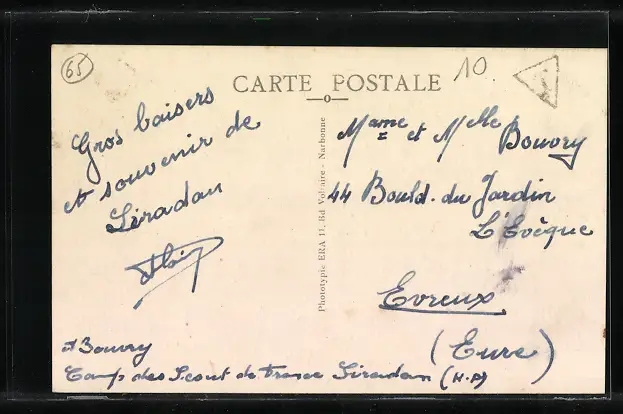 65
CARTE POSTALE
10
Gros baisers
et souvenir de
Siradan
Mame et Melle Bouvry
44 Bould. du Jardin
L'Evêque
Evreux
(Eure)
Phototypie ERA 11, Bd Voltaire - Narbonne
Bouvry
Camp des Scout de France Siradan (H-P)